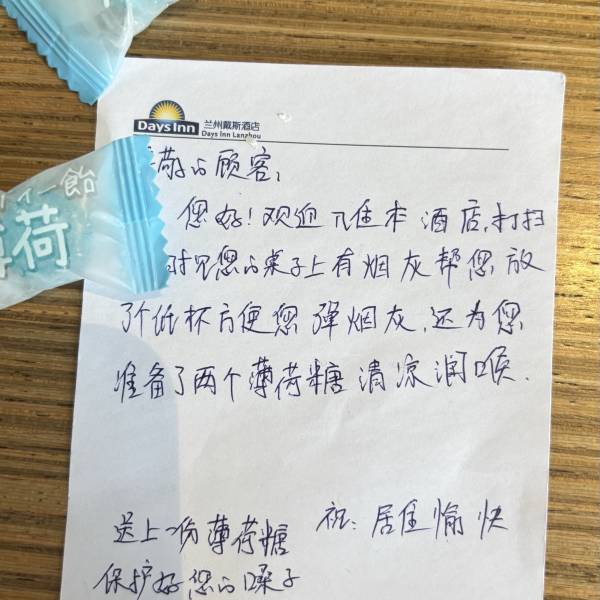 Days Inn 兰州戴斯酒店
Days Inn Lanzhou
的顾客,
您好!欢迎入住本酒店,打扫
时见您的桌子上有烟灰帮您放
了个纸杯方便您弹烟灰,还为您
准备了两个薄荷糖清凉润喉.
祝:居住愉快
送上一份薄荷糖
保护好您的嗓子
イー飴
荷